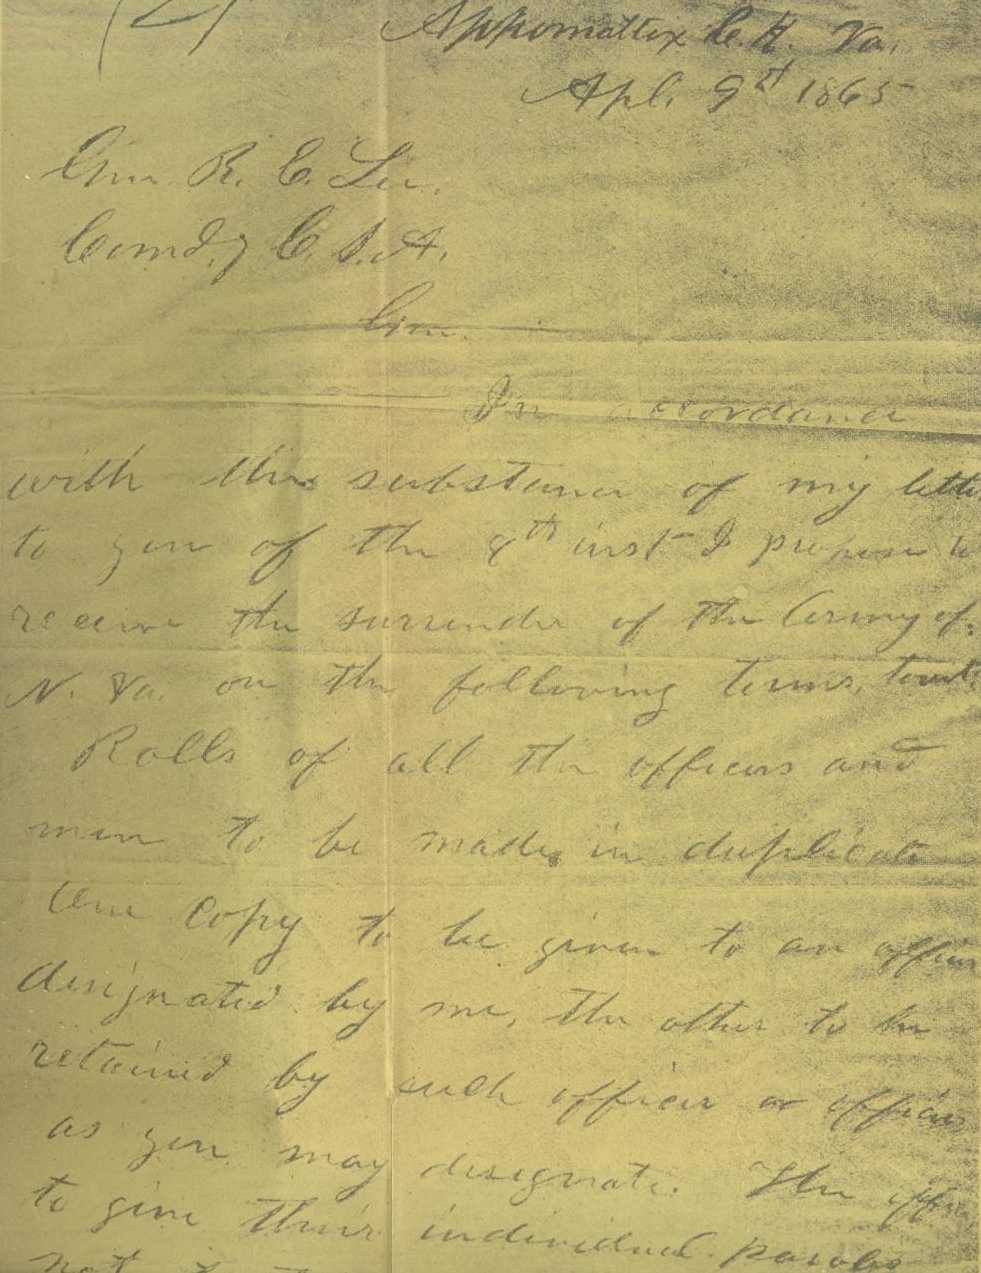 Appomattox C. H. Va.
Apl. 9th 1865
Gen. R. E. Lee.
Comd.g C. S. A.
Gen.
In accordance
with the substance of my letter
to you of the 8th inst I propose to
receive the surrender of the Army of
N. Va. on the following terms, towit:
Rolls of all the officers and
men to be made in duplicate
One copy to be given to an officer
designated by me, the other to be
retained by such officer or officers
as you may designate. The officers
to give their individual paroles
not to